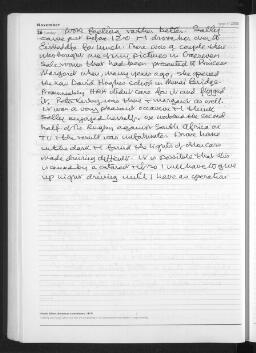 November
26 Sunday Woke feeling rather better. Sally
came just before 12.0 & I drove her over to
for lunch. There was a couple there
who bought one of my pictures in
that had been presented to Princess
Margaret when, many years ago, she opened
the new David Hughes School in Menai Bridge.
Presumably HRH didn't care for it and flogged
it. Peter was there & Margaret as well.
It was a very pleasant occasion & I think
Sally enjoyed herself. We watched the second
half of the Rugby against South Africa on
TV & the result was unfortunate. Drove home
in the dark & found the lights of other cars
made driving difficult. It is possible that this
is caused by a cataract & if so I will have to give
up night driving until I have an operation